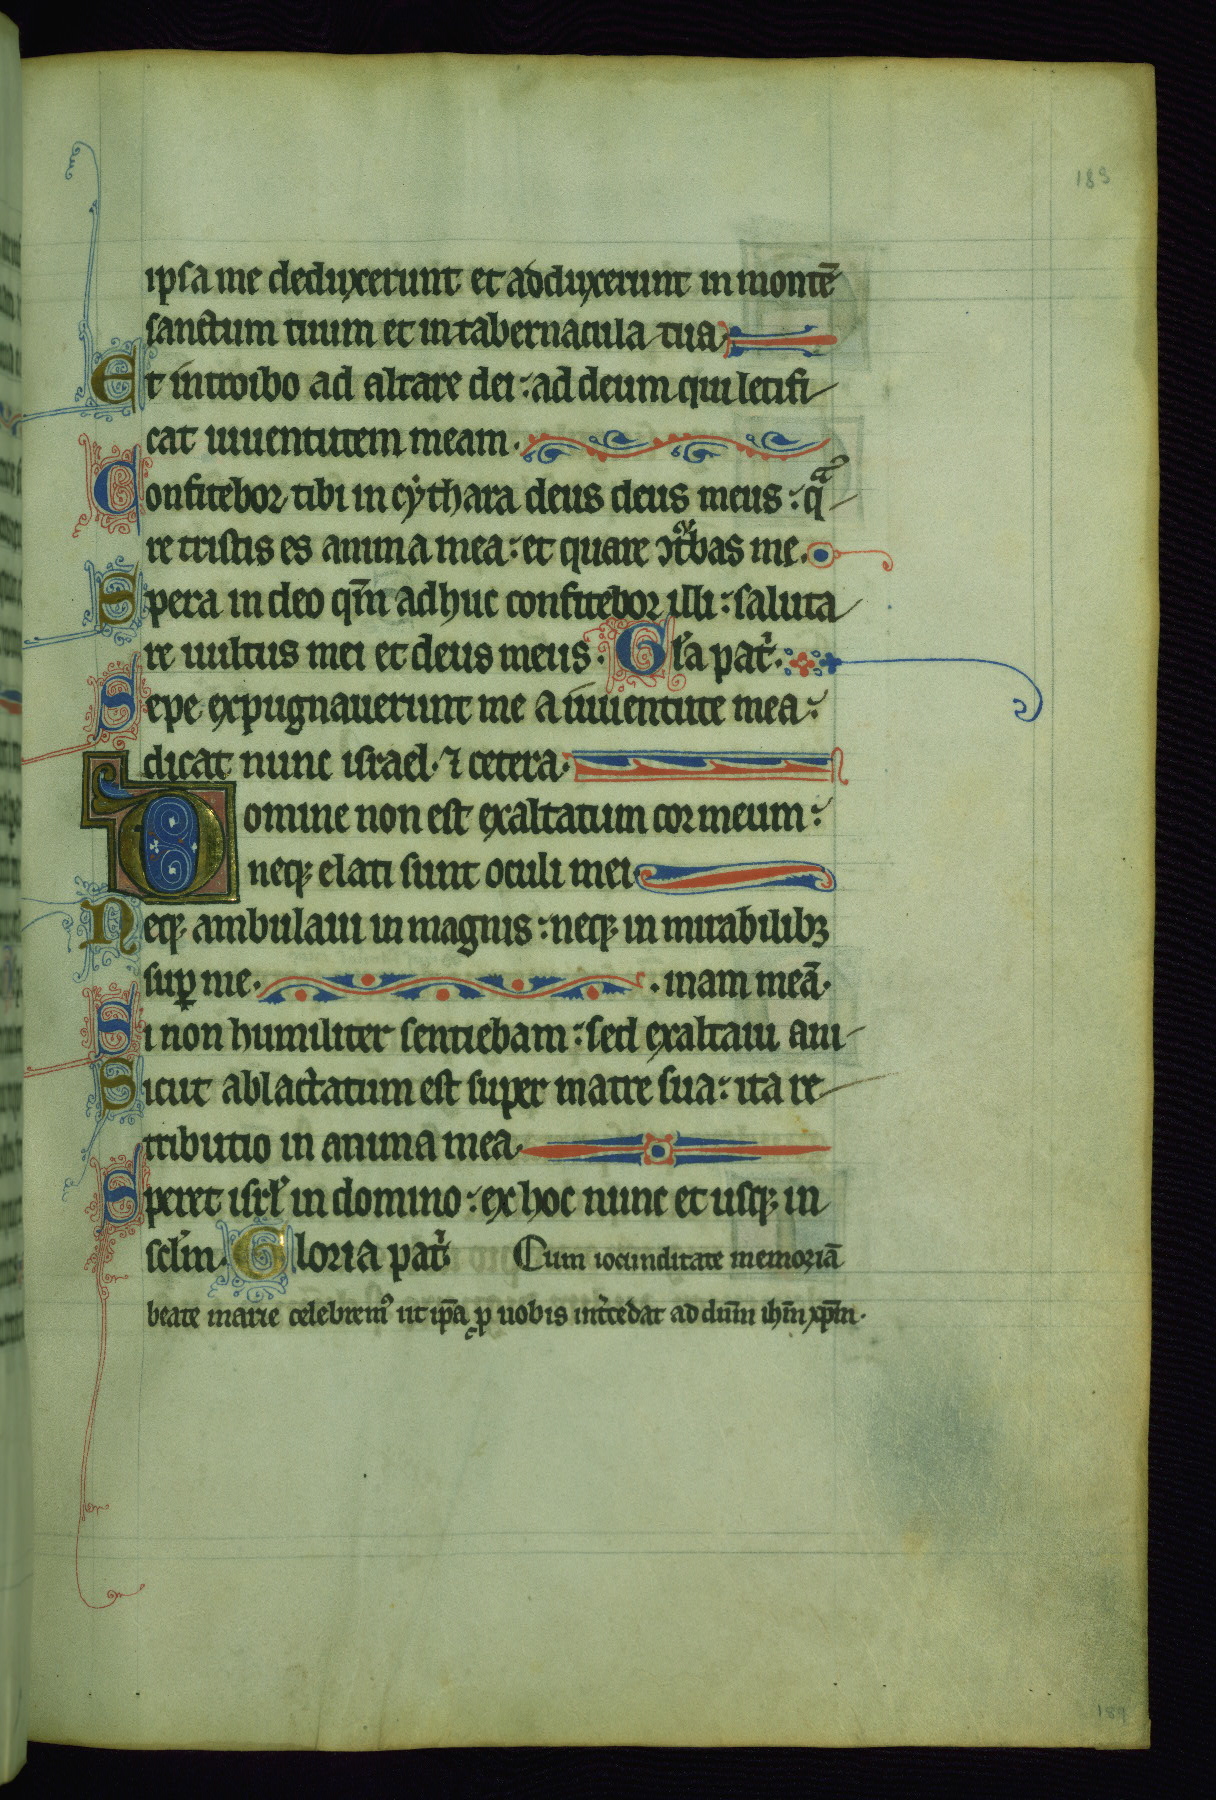 189
ipsa me deduxerunt et adduxerunt in montē
sanctum tuum et in tabernacula tua
Et introibo ad altare dei : ad deum qui letifi
cat iuuentutem meam .
Confitebor tibi in cythara deus deus meus : qᵃ
re tristis es anima mea : et quare ↄt᷑bas me .
Spera in deo qm̄ adhuc confitebor illi : saluta
re uultus mei et deus meus . Gl'a pat'.
Sepe expugnauerunt me a iuuentute mea :
dicat nunc israel . ⁊ cetera .
Domine non est exaltatum cor meum :
neqꝫ elati sunt oculi mei .
Neqꝫ ambulaui in magnis : neqꝫ in mirabilibꝫ
suꝑ me . . mam meā .
Si non humiliter sentiebam : sed exaltaui ani
Sicut ablactatum est super matre sua : ita re
tributio in anima mea .
Speret isrl' in domino : ex hoc nunc et usqꝫ in
sclm̄ . Gloria pat'
Cum iocunditate memoriā
beate marie celebremꝰ ut ip̄a ꝑ uobis int'cedat ad dūm ihm̄ xp̄m .
189